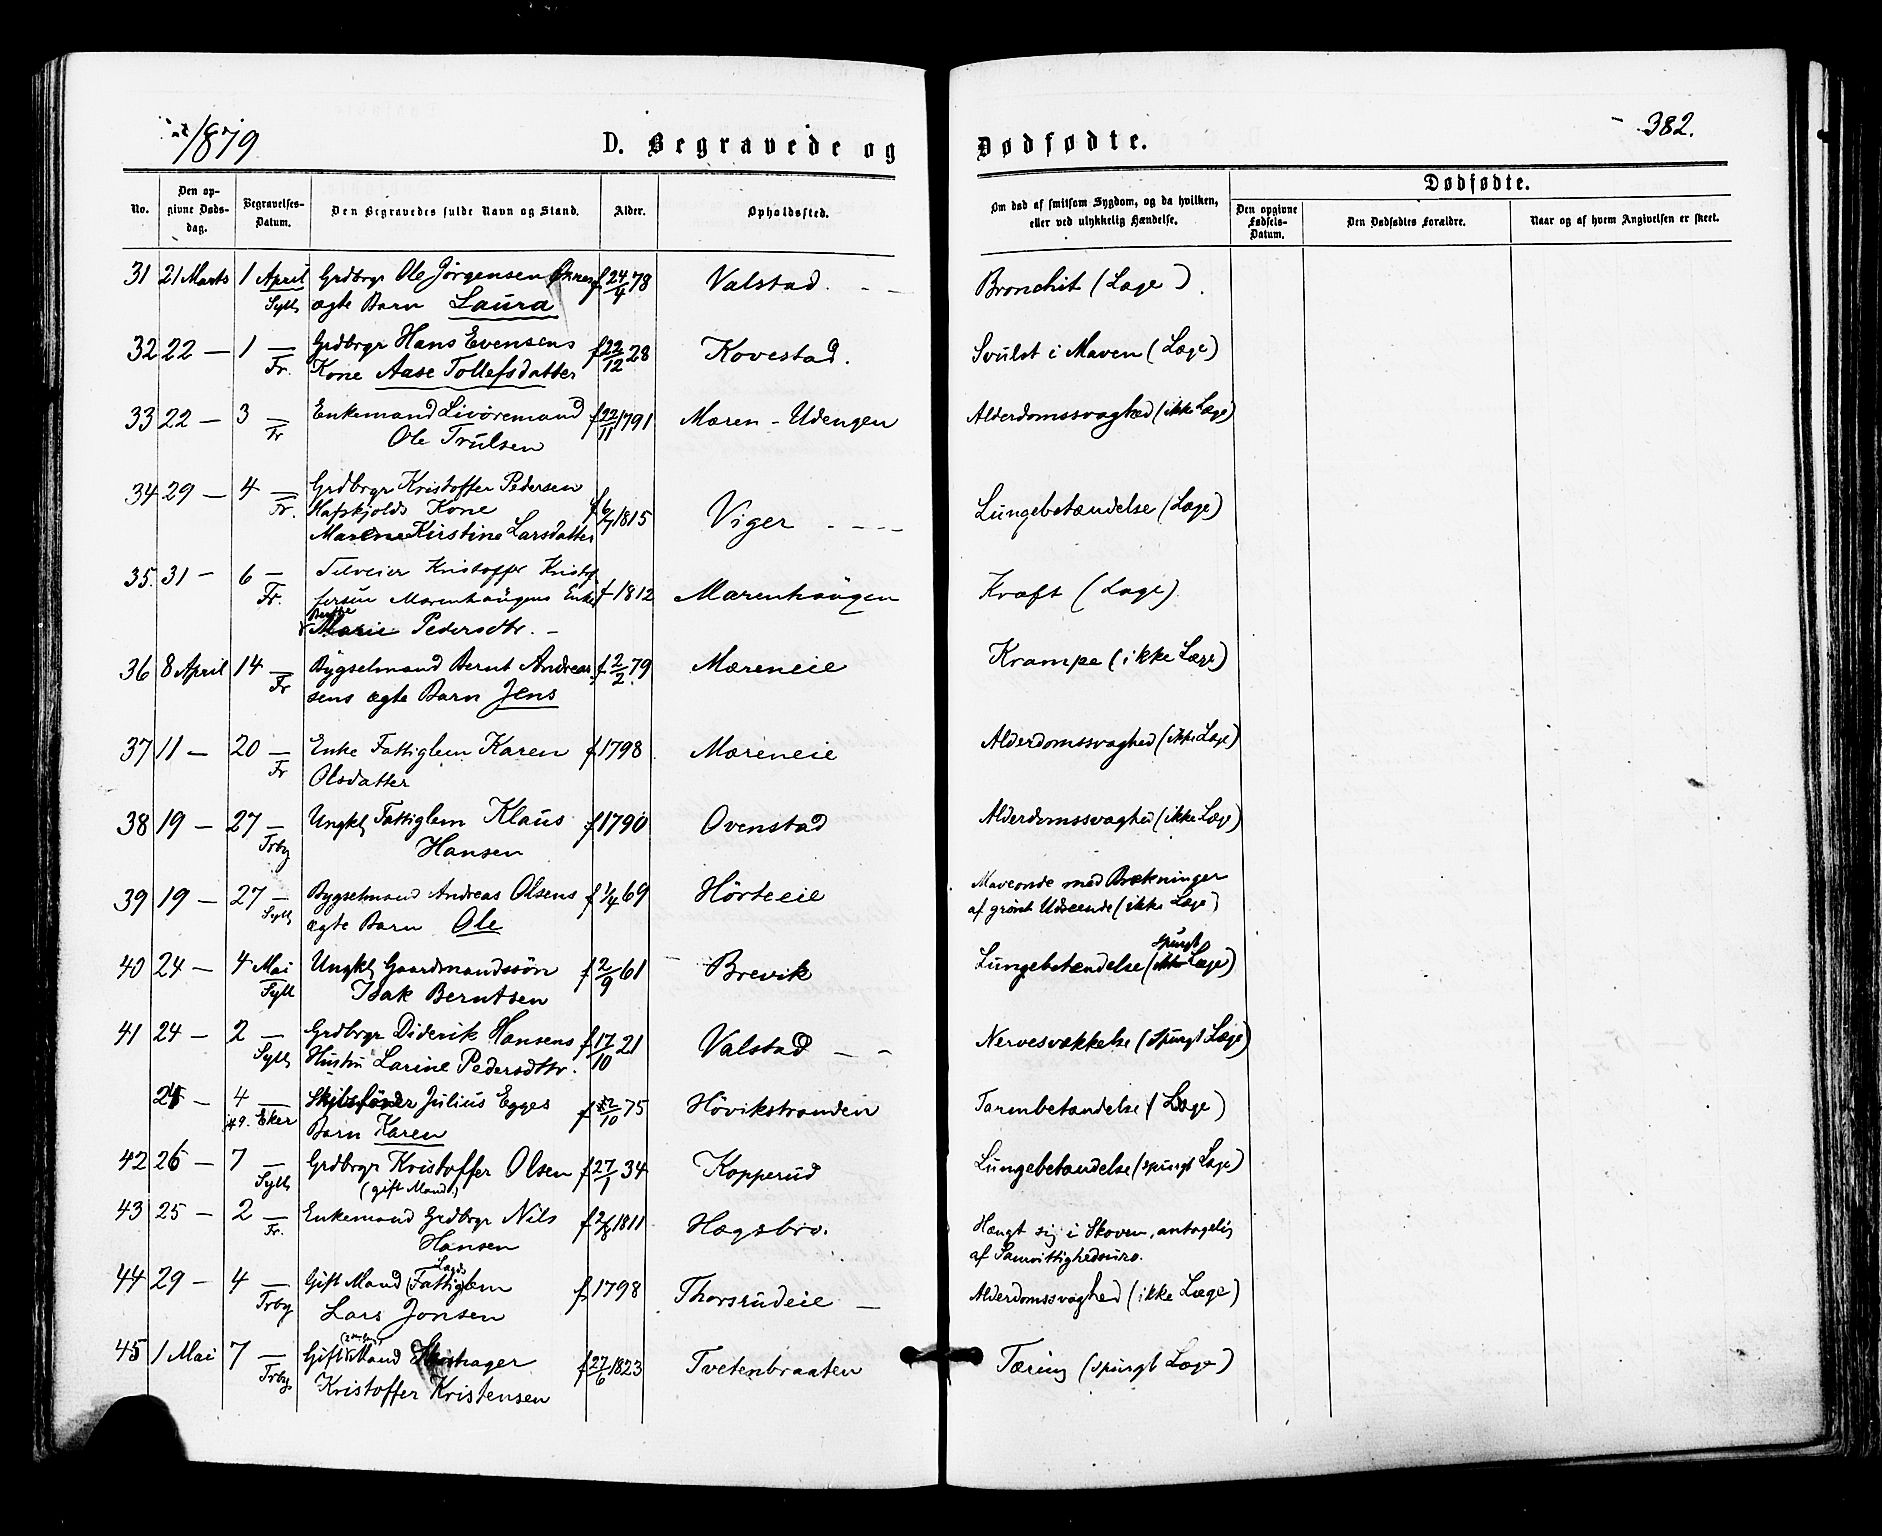 1879
D. Begravede og Dødfødte.
382.
No.
Den opgivne Dødsdag.
Begravelses-Datum.
Den Begravedes fulde Navn og Stand.
Alder.
Opholdssted.
Om død af smitsom Sygdom, og da hvilken, eller ved ulykkelig Hændelse.
Dødfødte.
Den opgivne Fødsels-Datum.
Den Dødfødtes Forældre.
Naar og af hvem Angivelsen er skeet.
31 21 Marts 1 April Grdbrgr Ole Jörgensen f 24/4 78 Valstad. Bronchit (Læge)
Syll ægte Barn Laura
32 22 — 1 — Grdbrgr Hans Evensens f 22/12 28 Kovestad. Svulst i Maven (Læge)
Fr. Kone Aase Tollefsdatter
33 22 — 3 — Enkemand Livöremand f 22/11 1791 Mæren - Udengen Alderdomssvaghed (ikke Læge)
Fr Ole Trulsen
34 29 — 4 — Grdbrgr Kristoffer Pedersen
Fr. Hafskjolds Kone f 6/7 1815 Viger Lungebetændelse (Læge)
Marene Kirstine Larsdatter
35. 31 — 6 — Kristoffer Kristof
Fr. fersen Mærenhaugens Enke f 1812 Mærenhaugen Kræft (Læge).
Marie Pedersdtr. —
36 8 April 14 — Bygselmand Bernt Andrea- f 2/2 79 Mæreneie Krampe (ikke Læge)
Fr sens ægte Barn Jens
37 11 — 20 — Enke Fattiglem Karen f 1798 Mæreneie Alderdomssvaghed (ikke Læge)
Fr Olsdatter
38 19 — 27 — Ungkl Fattiglem Klaus f 1790 Ovenstad Alderdomssvaghed (ikke Læge)
Trby Hansen
39 19 — 27 — Bygselmand Andreas Olsens f 1/4 69 Hörteeie Maveonde med Brækninger
Syll ægte Barn Ole af grönt Udseende (ikke Læge)
40 24 — 4 Mai Ungkl Gaardmandssön f 2/9 61 Brevik Lungebetændelse (spurgt Læge)
Syll Isak Berntsen
41 24 — 2 — Grdbrgr Diderik Hansens f 17/10 21 Valstad — Nervesvækkelse (spurgt Læge)
Syll Hustru Larine Pedersdttr.
24 — 4 — Skibsförer Julius Egges f 12/10 75 Hövikstranden Tarmbetændelse (Læge)
Eker Barn Karen
42 26 — 7 — Grdbrgr Kristoffer Olsen f 27/1 34 Kopperud Lungebetændelse (spurgt Læge)
Syll (gift Mand)
43 25 — 2 — Enkemand Grdbrgr Nils f 2/8 1811 Hægsbro. Hængt sig i Skoven, antagelig
Fr. Hansen af Samvittighedsuro.
44 29 — 4 — Gift Mand (Lægds Fattiglem f 1798 Thorsrudeie — Alderdomssvaghed (ikke Læge)
Trby Lars Jonsen
45 1 Mai 7 — Gift Mand f 27/6 1823 Tvetenbraaten Tæring (spurgt Læge)
Trby Kristoffer Kristensen